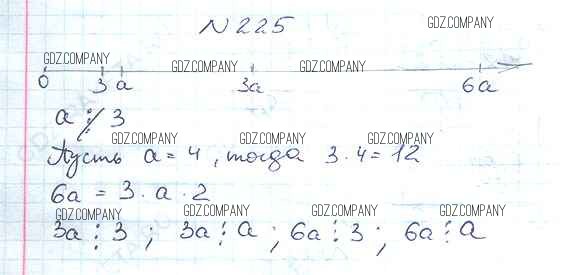 N 225
GDZ.COMPANY
GDZ.COMPANY
GDZ.COMPANY
GDZ.COMPANY
0 3 a 3a 6a
a ⋮̸ 3
GDZ.COMPANY GDZ.COMPANY GDZ.COMPANY
Пусть a = 4, тогда 3 · 4 = 12
6a = 3 · a · 2
GDZ.COMPANY GDZ.COMPANY GDZ.COMPANY GDZ.COMPANY
3a ⋮ 3 ; 3a ⋮ a ; 6a ⋮ 3 ; 6a ⋮ a